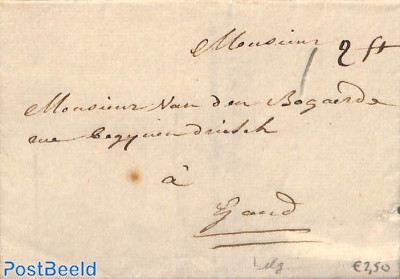 Monsieur
2 ſt
Monsieur Van den Bogaerde
rue begynendriesch
à
Gand
belg
€2,50
PostBeeld